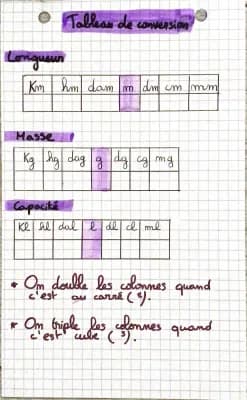 Tableau de conversion
Longueur
Km hm dam m dm cm mm
Masse
Kg hg dag g dg cg mg
Capacité
Kl hl dal l dl cl ml
• On double les colonnes quand
c'est au carré (²).
• On triple les colonnes quand
c'est cube (³).